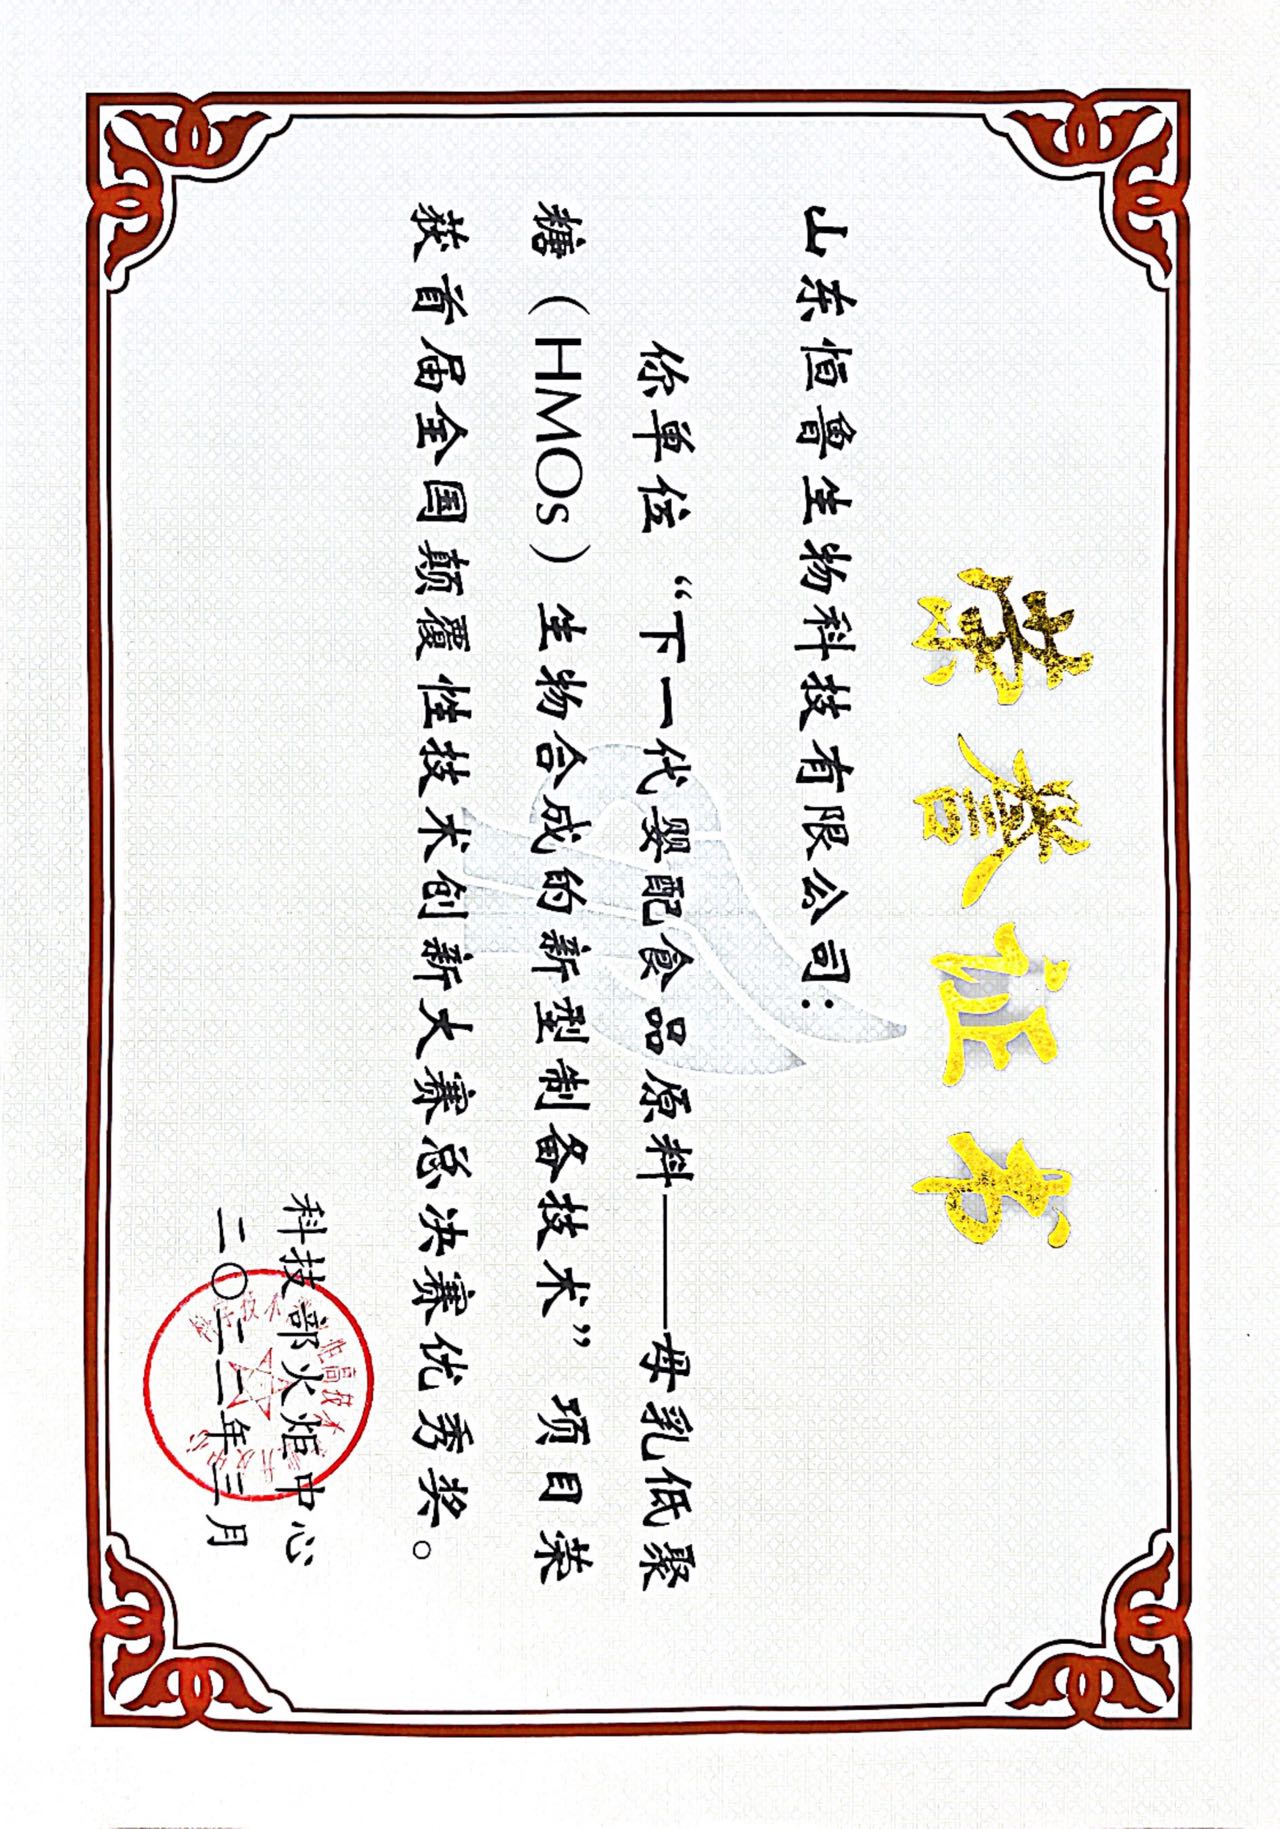 荣誉证书
山东恒鲁生物科技有限公司：
你单位“下一代婴配食品原料——母乳低聚
糖（HMOs）生物合成的新型制备技术”项目荣
获首届全国颠覆性技术创新大赛总决赛优秀奖。
科技部火炬中心
二〇二二年三月